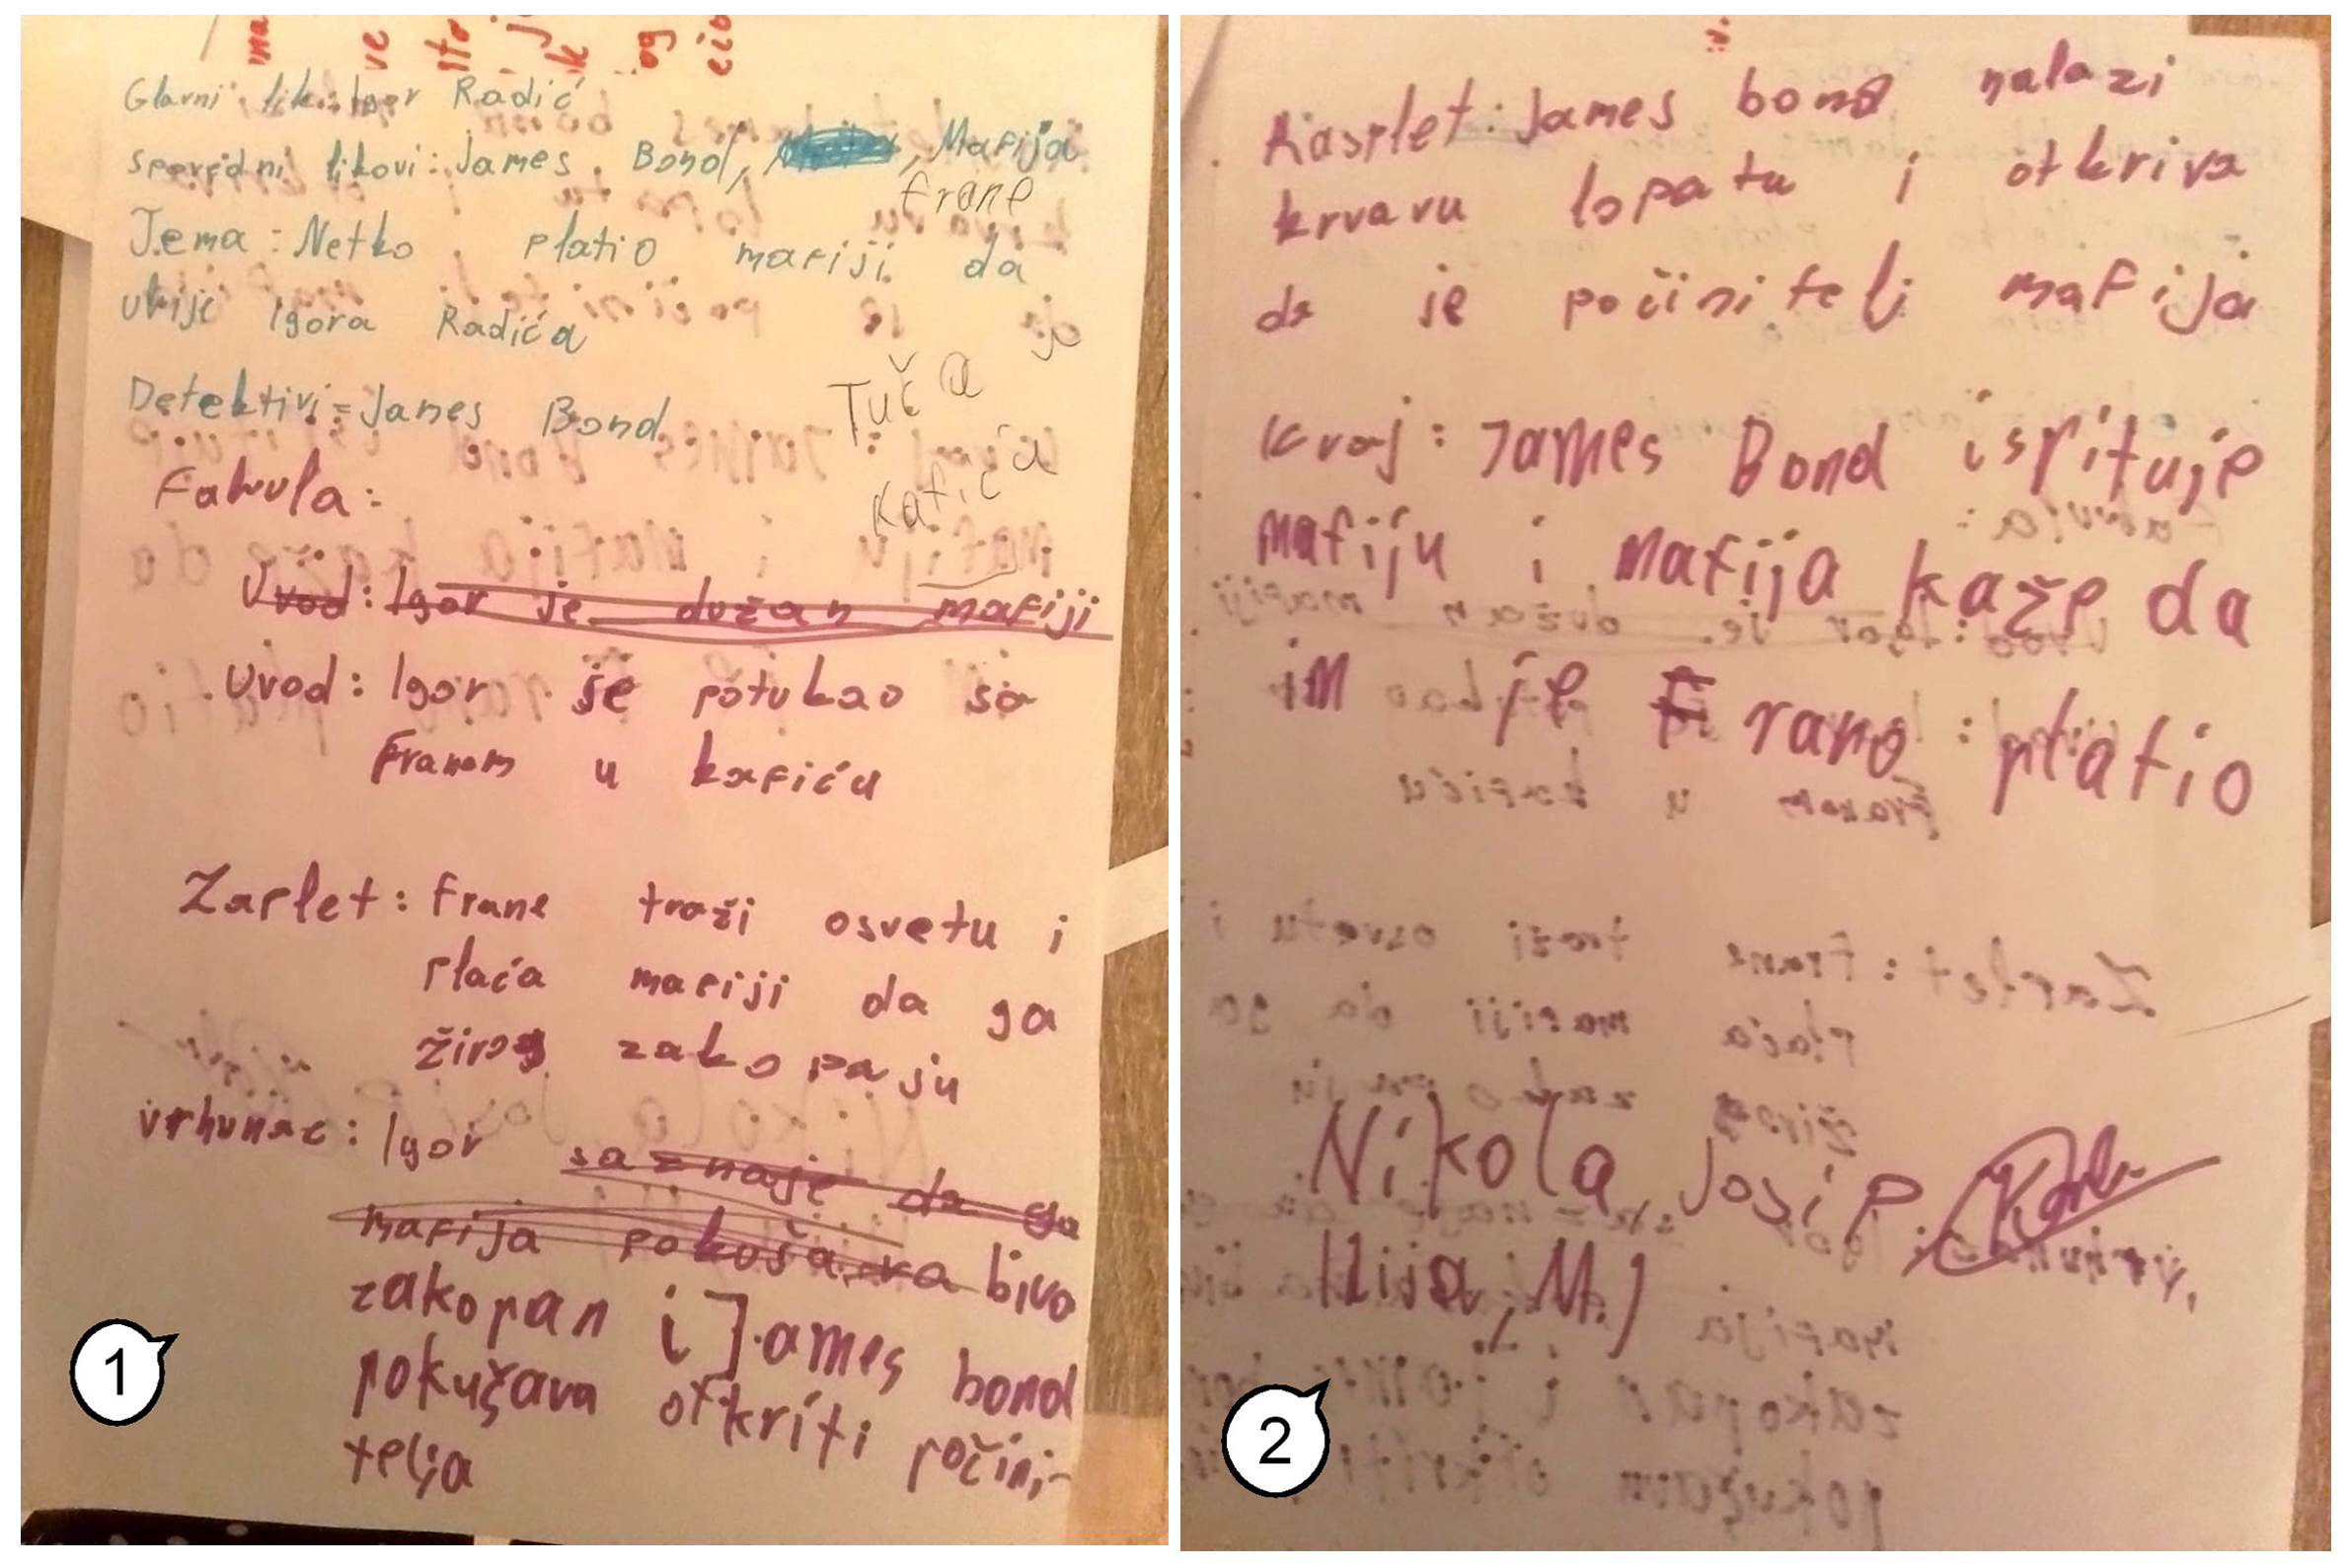 Glavni lik: Igor Radić
sporedni likovi: James Bond, , Mafija
frane
Tema: Netko platio mafiji da
ubije Igora Radića
Detektivi: James Bond
Tuča
Kafića
Fabula:
Uvod: Igor je dužan mafiji
Uvod: Igor se potukao sa
Franom u kafiću
Zaplet: Frane traži osvetu i
plaća mafiji da ga
živog zakopaju
vrhunac: Igor saznaje da ga
mafija pokušava biva
zakopan i James bond
pokušava otkriti počini-
telja
1
Rasplet: James bond nalazi
krvavu lopatu i otkriva
da je počinitelj mafija
Kraj: James Bond ispituje
mafiju i mafija kaže da
im je Frano platio
Nikola, Josip.
Ilija, M.J
2